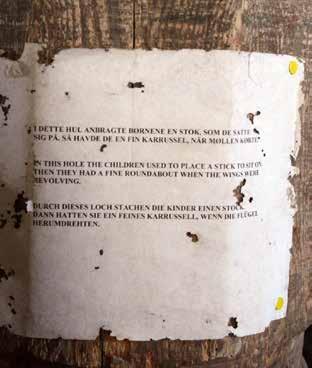 I DETTE HUL ANBRAGTE BØRNENE EN STOK, SOM DE SATTE
SIG PÅ. SÅ HAVDE DE EN FIN KARRUSSEL, NÅR MØLLEN KØRTE.
IN THIS HOLE THE CHILDREN USED TO PLACE A STICK TO SIT ON
THEN THEY HAD A FINE ROUNDABOUT WHEN THE WINGS WERE
REVOLVING.
DURCH DIESES LOCH STACHEN DIE KINDER EINEN STOCK
DANN HATTEN SIE EIN FEINES KARRUSSELL, WENN DIE FLÜGEL
HERUMDREHTEN.